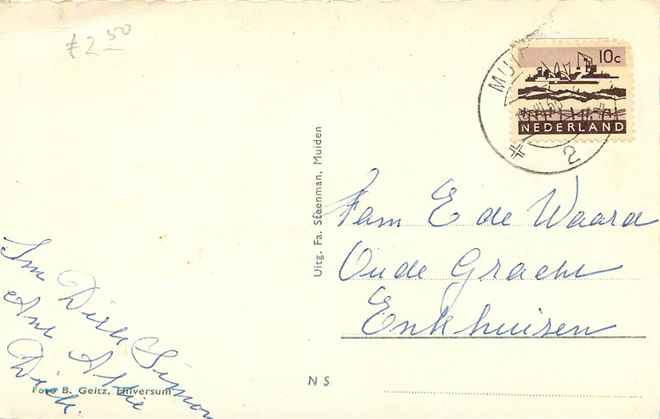 £2.50
MUI
10c
NEDERLAND
2
Uitg. Fa. Steenman, Muiden
Fam E de Waard
Oude Gracht
Enkhuizen
Dirk Simon
Dirk.
Foto B. Geitz, Hilversum
N S